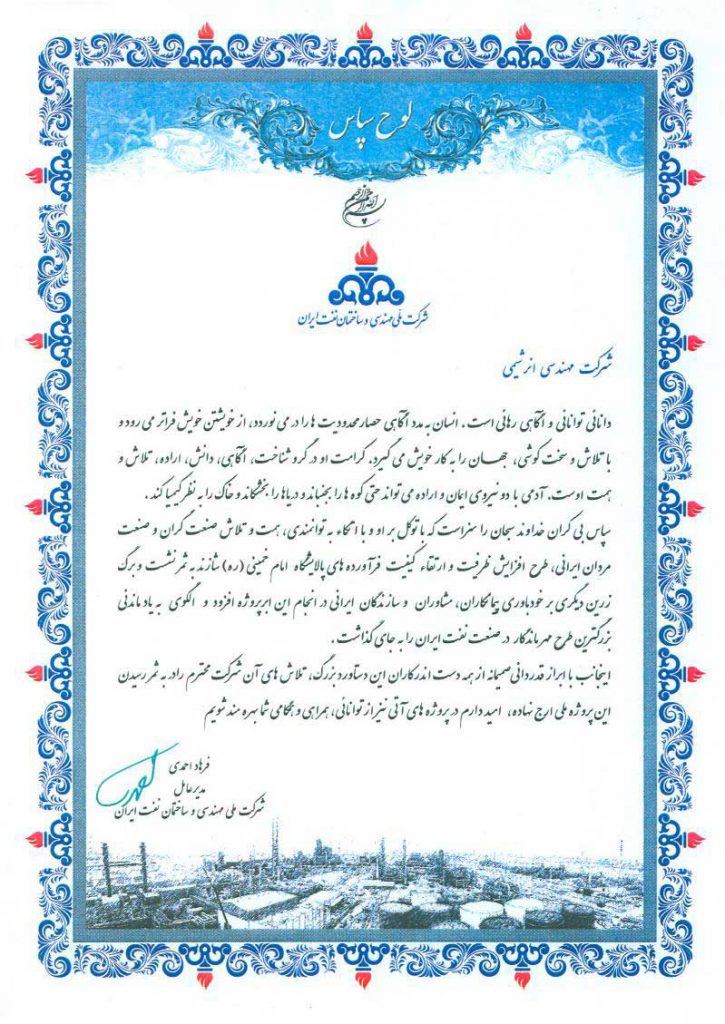 لوح سپاس
بسم الله الرحمن الرحیم
شرکت ملی مهندسی و ساختمان نفت ایران
شرکت مهندسی انرشیمی
دانائی توانائی و آگاهی رهائی است . انسان به مدد آگاهی حصار محدودیت ها را در می نوردد، از خویشتن خویش فراتر می رود و
با تلاش و سخت کوشی، جهان را به کار خویش می گیرد. کرامت او در گرو شناخت، آگاهی، دانش، اراده، تلاش و
همت اوست. آدمی با دو نیروی ایمان و اراده می تواند حتی کوه ها را بجنباند و دریاها را بخشکاند و خاک را به نظر کیمیا کند .
سپاس بی کران خداوند سبحان را سزاست که با توکل بر او و با اتکاء به توانمندی، همت و تلاش صنعت گران و صنعت
مردان ایرانی، طرح افزایش ظرفیت و ارتقاء کیفیت فرآورده های پالایشگاه امام خمینی (ره) شازند به ثمر نشست و برگ
زرین دیگری بر خودباوری پیمانکاران، مشاوران و سازندگان ایرانی در انجام این ابرپروژه افزود و الگوی به یاد ماندنی
بزرگترین طرح مهر ماندگار در صنعت نفت ایران را به جای گذاشت .
اینجانب با ابراز قدردانی صمیمانه از همه دست اندرکاران این دستاورد بزرگ، تلاش های آن شرکت محترم را در به ثمر رسیدن
این پروژه ملی ارج نهاده، امید دارم در پروژه های آتی نیز از توانائی، همراهی و همگامی شما بهره مند شویم
فرهاد احمدی
مدیرعامل
شرکت ملی مهندسی و ساختمان نفت ایران